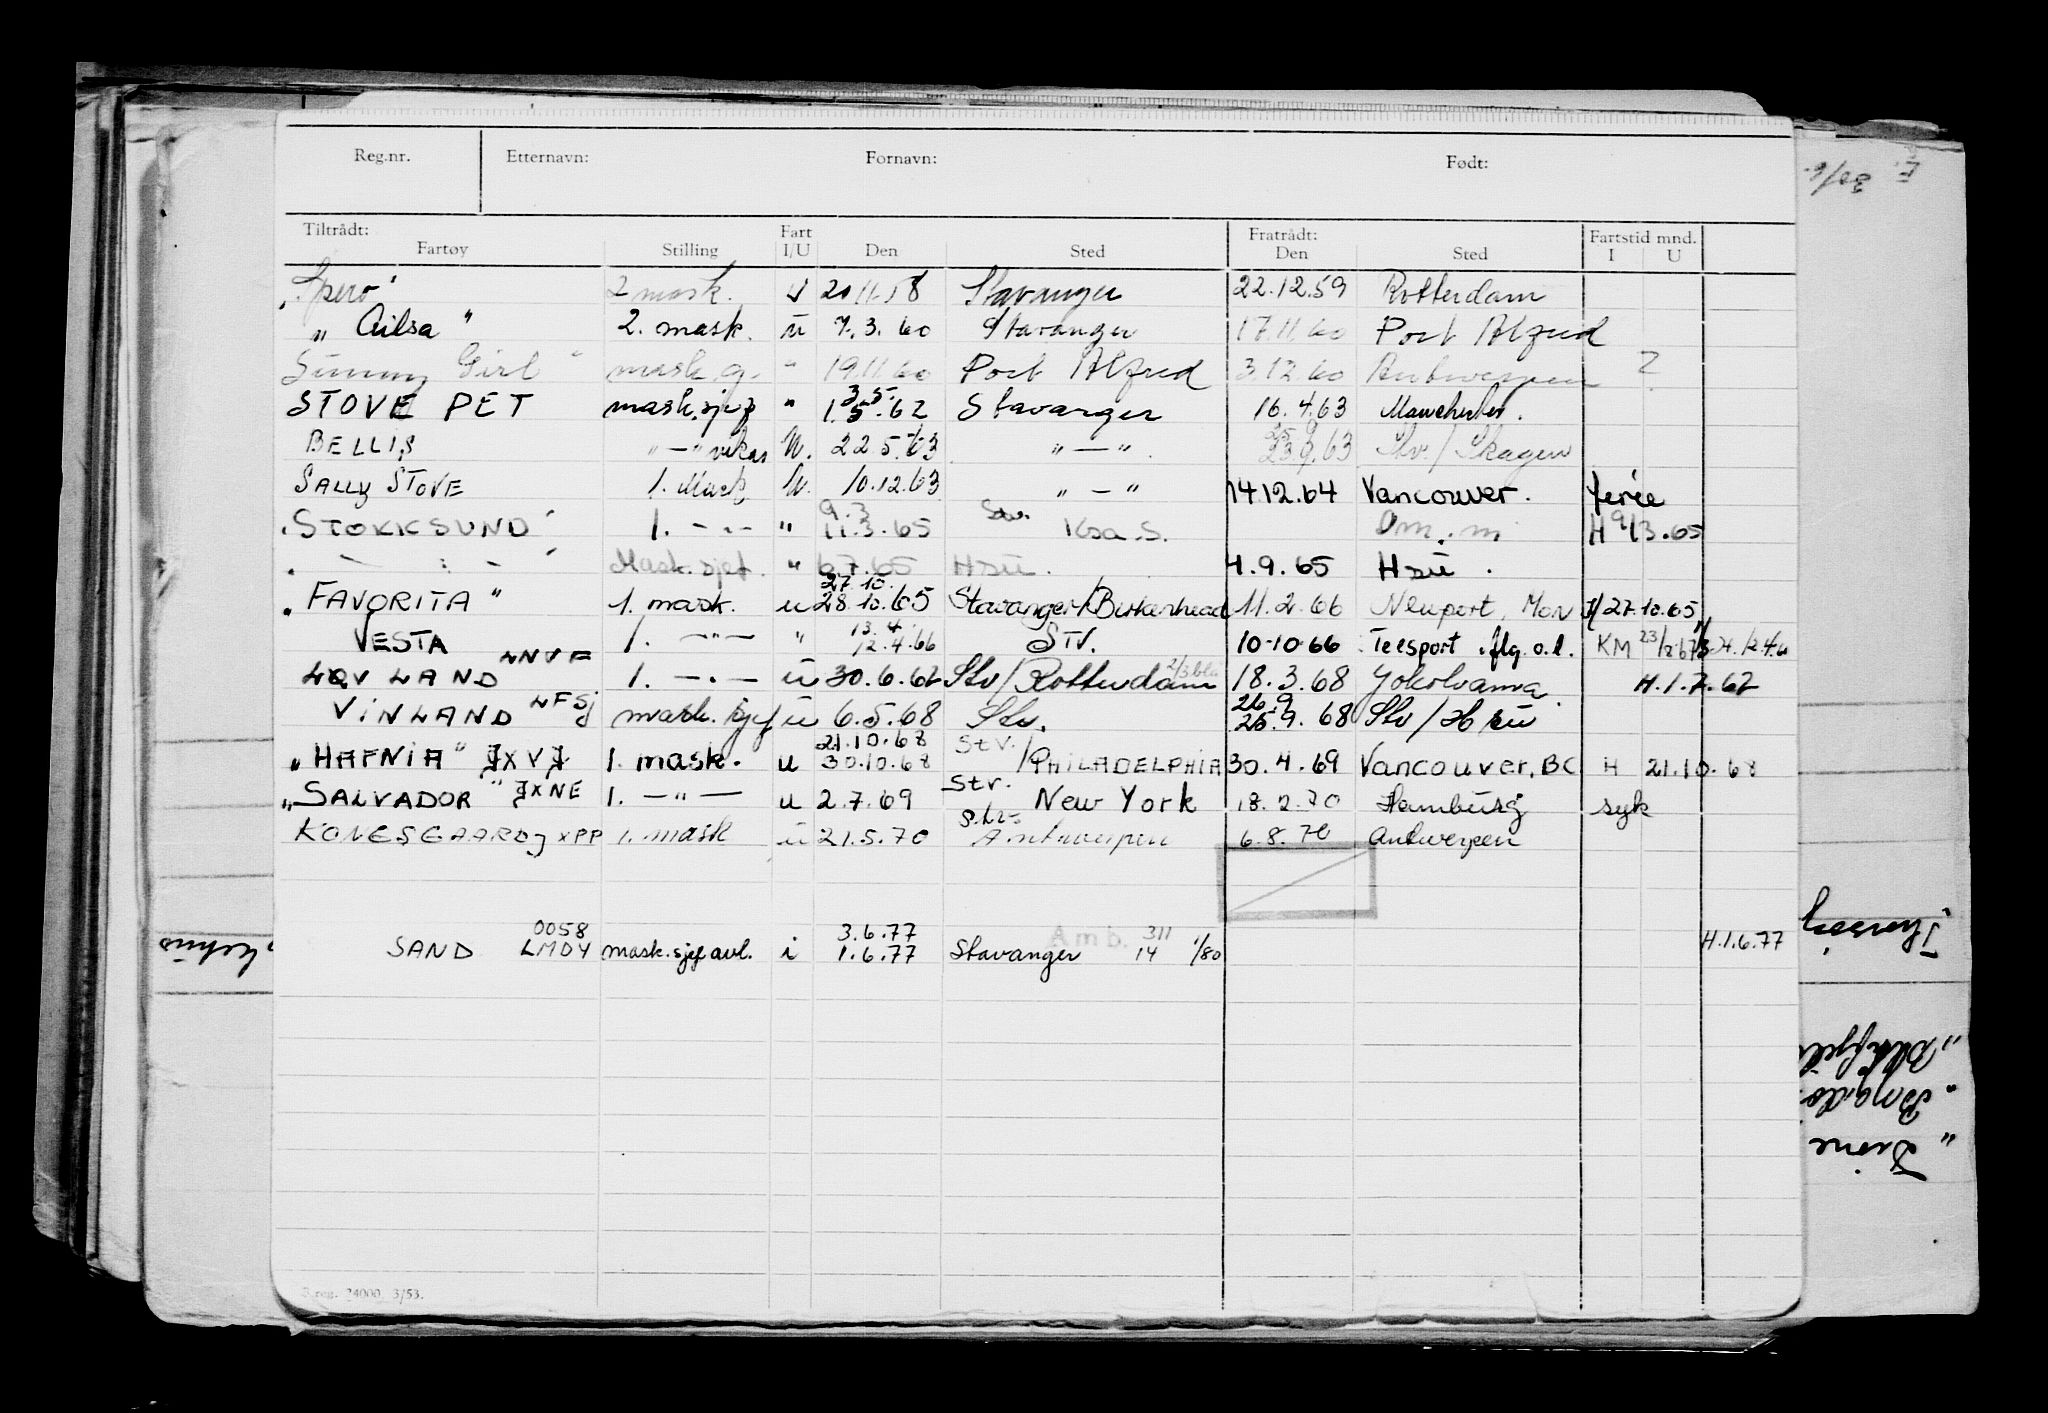 Reg.nr. Etternavn: Fornavn: Født:
Tiltrådt: Fart Fratrådt: Fartstid mnd.
Fartøy Stilling I/U Den Sted Den Sted I U
"Spero" 2 mask. U 20.11.58 Stavanger 22.12.59 Rotterdam
"Ailsa" 2. mask. u 7.3.60 Stavanger 17.11.60 Port Alfred
Sunny Girl " mask. " 19.11.60 Port Alfred 3.12.60 Antwerpen ?
3.5.
STOVE PET mask.sjef " 1.5.62 Stavanger 16.4.63 Manchester.
BELLIS "—" vikar U. 22.5.63 "—". 23.9.63 Stv./Skagen
SALLY STOVE 1. Mask U. 10.12.63 "—" 14.12.64 Vancouver. ferie
9.3 Stv.
"STOKKSUND" 1. —"— " 11.3.65 Ksa.S. Om.m. H 9/3.65
— " — Mask.sjef. " 6.7.65 HSU. 4.9.65 HSU.
27.10.
"FAVORITA" 1. mask. u 28.10.65 Stavanger/Birkenhead 11.2.66 Newport, Mon H 27.10.65
13.4.
VESTA 1. —"— " 12.4.66 STV. 10-10-66 Teesport flg. o.l. KM 23/2.67
LNVF
LOV LAND 1. —"— u 30.6.67 Stv/Rotterdam 18.3.68 Yokohama H.1.7.67
LFSJ 26.9
VINLAND mask.sjef u 6.5.68 Stv. 25.9.68 Stv/HSU
21.10.68 Stv.
"HAFNIA" JXVJ 1. mask. u 30.10.68 /PHILADELPHIA 30.4.69 Vancouver, BC. H 21.10.68
Stv.
"SALVADOR" JXNE 1. —"— u 2.7.69 New York 18.2.70 Hamburg syk
Stv.
KONGSGAARD JXPP 1. mask u 21.5.70 Antwerpen 6.8.70 Antwerpen
0058 3.6.77 Amb. 311
SAND LMDY mask.sjef avl. i 1.6.77 Stavanger 14 1/80 H.1.6.77
reg. 24000. 3/53.